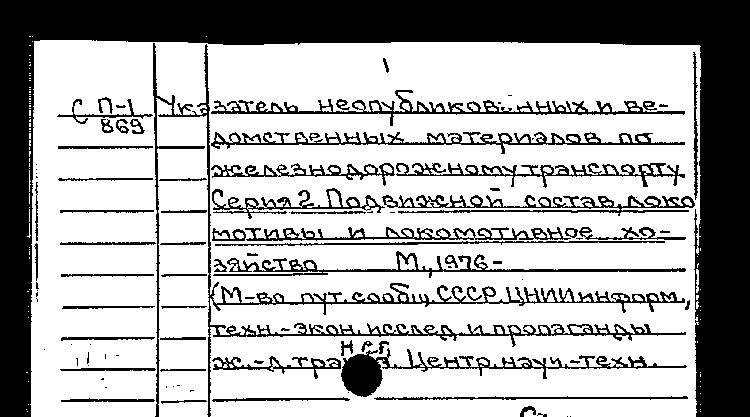 1
С П-1 Указатель неопубликованных и ве-
869
домственных материалов по
железнодорожному транспорту
Серия 2. Подвижной состав, локо
мотивы и локомотивное хо-
зяйство М., 1976-
(М-во пут. сообщ. СССР. ЦНИИ информ.,
техн.-экон. исслед. и пропаганды
ж.-д. Центр. науч.-техн.